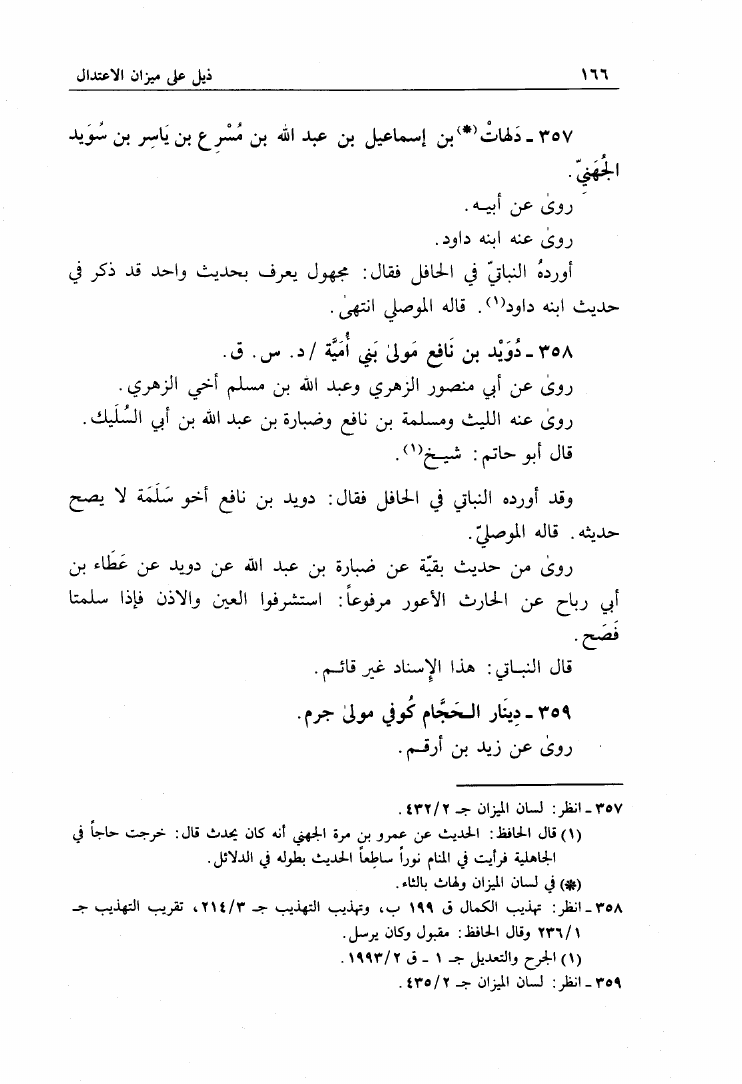 ١٦٦ ذيل على ميزان الاعتدال
٣٥٧ ـ دَلهاتْ(*) بن إسماعيل بن عبد الله بن مُسْرِع بن يَاسِر بن سُوَيد
الجُهَنيّ.
روىٰ عن أبيـه.
روىٰ عنه ابنه داود.
أوردهُ النباتيّ في الحافل فقال: مجهول يعرف بحديث واحد قد ذكر في
حديث ابنه داود(١). قاله الموصلي انتهىٰ.
٣٥٨ ـ دُوَيْد بن نَافع مَولىٰ بَني أُمَيَّة / د. س. ق.
روىٰ عن أبي منصور الزهري وعبد الله بن مسلم أخي الزهري.
روىٰ عنه الليث ومسلمة بن نافع وضبارة بن عبد الله بن أبي السُلَيك.
قال أبو حاتم: شيـخ(١).
وقد أورده النباتي في الحافل فقال: دويد بن نافع أخو سَلَمَة لا يصح
حديثه. قاله الموصليّ.
روىٰ من حديث بقيّة عن ضبارة بن عبد الله عن دويد عن عَطَاء بن
أبي رباح عن الحارث الأعور مرفوعاً: استشرفوا العين والاذن فإذا سلمتا
فَصَح.
قال النبـاتي: هذا الإسناد غير قائـم.
٣٥٩ ـ دِينَار الـحَجَّام كُوفي مولىٰ جرم.
روىٰ عن زيد بن أرقـم.
٣٥٧ ـ انظر: لسان الميزان جـ ٤٣٢/٢.
(١) قال الحافظ: الحديث عن عمرو بن مرة الجهني أنه كان يحدث قال: خرجت حاجاً في
الجاهلية فرأيت في المنام نوراً ساطِعاً الحديث بطوله في الدلائل.
(*) في لسان الميزان ولهاث بالثاء.
٣٥٨ ـ انظر: تهذيب الكمال ق ١٩٩ ب، وتهذيب التهذيب جـ ٢١٤/٣، تقريب التهذيب جـ
٢٣٦/١ وقال الحافظ: مقبول وكان يرسل.
(١) الجرح والتعديل جـ ١ - ق ١٩٩٣/٢.
٣٥٩ ـ انظر: لسان الميزان جـ ٤٣٥/٢.